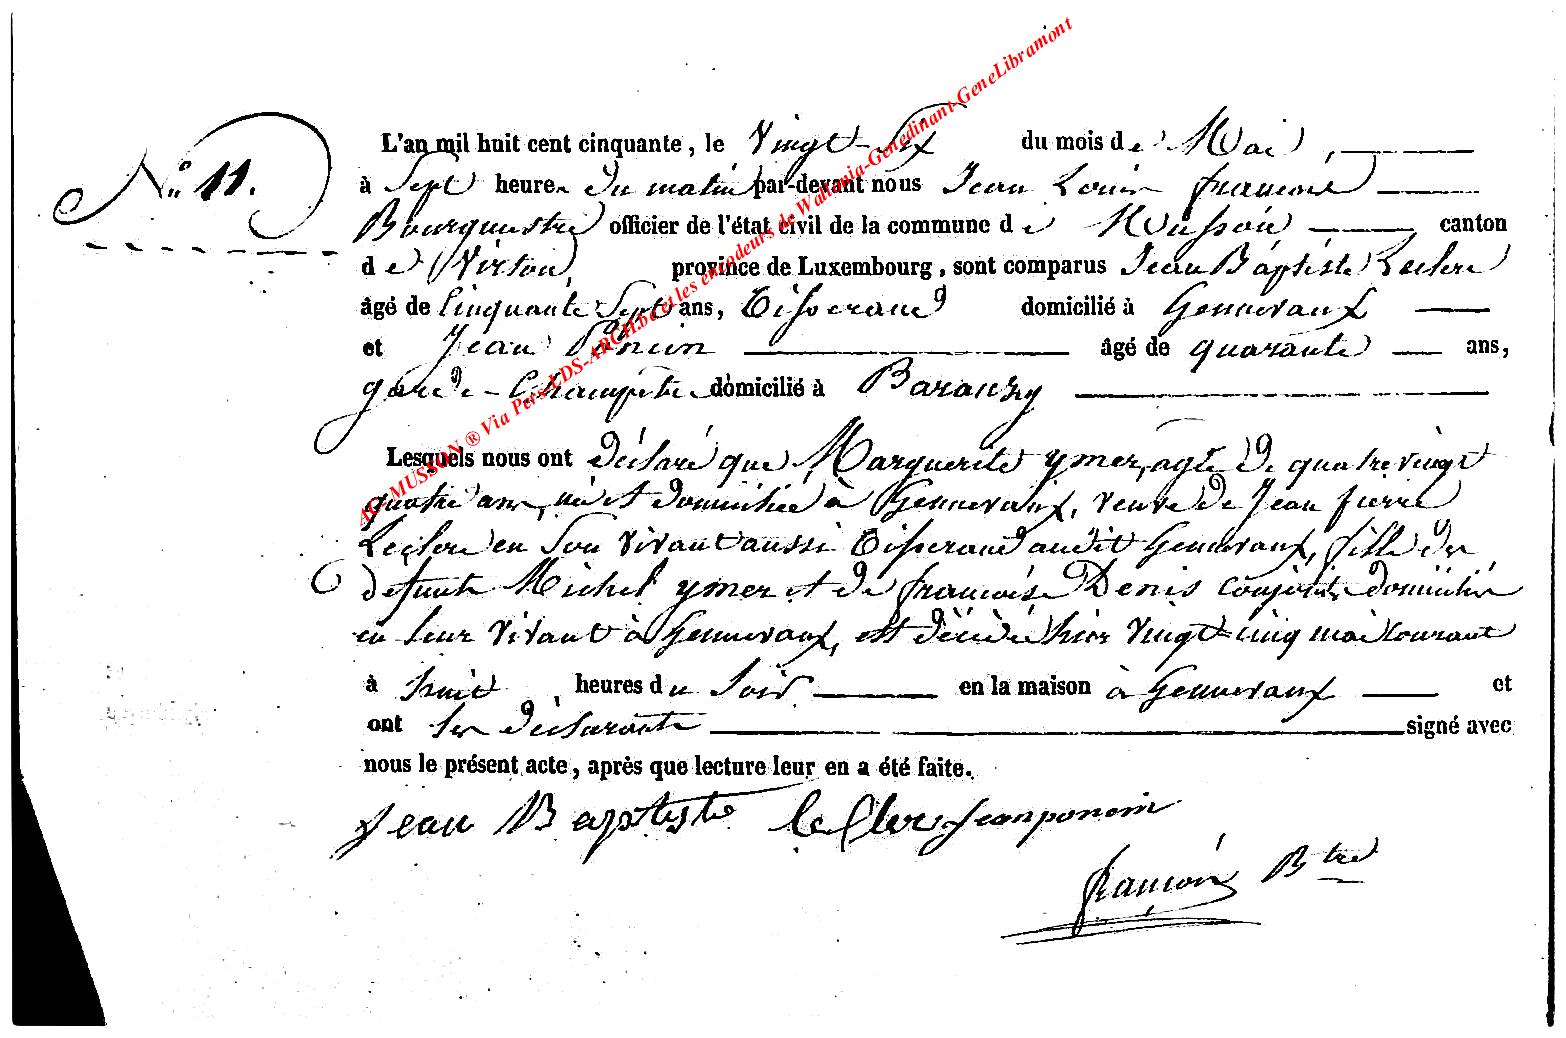 N.° 11.
L'an mil huit cent cinquante, le Vingt Six du mois de Mai,
à Sept heures du matin par-devant nous Jean Louis françois
Bourguestre officier de l'état civil de la commune de Musson canton
de Virton, province de Luxembourg, sont comparus Jean Baptiste Leclere
âgé de Cinquante Sept ans, Tisserand domicilié à Gennevaux
et Jean Poncin âgé de quarante ans,
garde-Champêtre domicilié à Baranzy
Lesquels nous ont déclaré que Marguerite ymer, agée de quatre vingt
quatre ans, née et domiciliée à Gennevaux, veuve de Jean pierre
Leclere en Son Vivant aussi Tisserand audit Gennevaux, fille des
defunts Michel ymer et de françoise Denis conjoints domiciliés
en leur vivant à Gennevaux, est décédée hier vingt-cinq mai courant
à huit heures du Soir en la maison à Gennevaux et
ont les déclarants signé avec
nous le présent acte, après que lecture leur en a été faite.
Jean Baptiste le Cler Jean poncin
françois Btre
AC-MUSSON ® Via Pers LDS-ARCH.be et les encodeurs de Wallonia-Genedinant-GeneLibramont